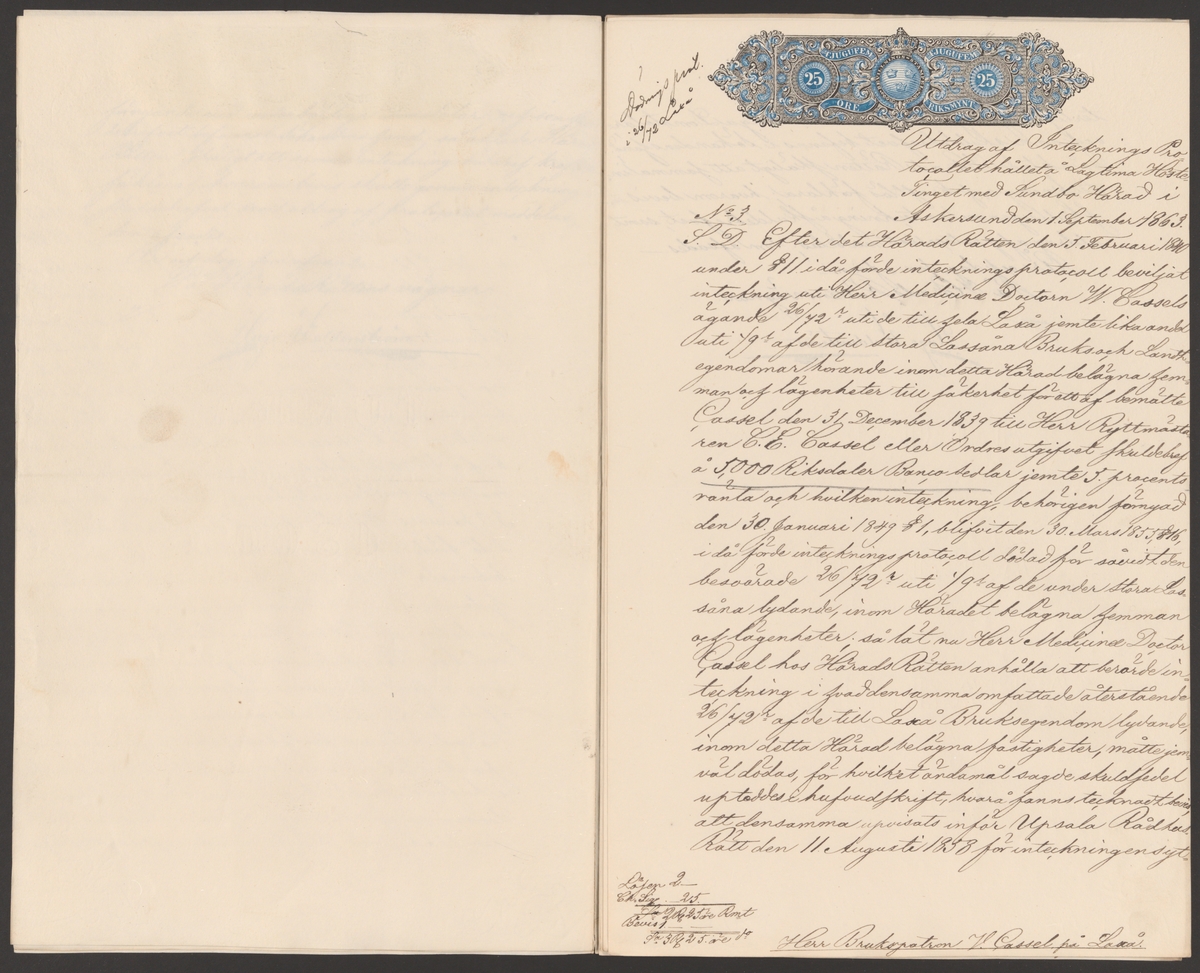 Dödnings prot.
i 26/72 Laxå
TJUGUFEM TJUGUFEM
25 25
ÖRE RIKSMYNT
Utdrag af Intecknings Pro
tocollet hållet å Lagtima Höste
Tinget med Sundbo Härad i
Askersund den 1 September 1863.
No 3.
S. D. Efter det Härads Rätten den 5 Februari 1840
under § 11 i då förde inteckningsprotocoll beviljat
inteckning uti Herr Medicinæ Doctorn W. Cassels
ägande 26/72r uti de till hela Laxå jemte lika andel
uti 1/9t af de till stora Lassåna Bruks och Landt-
egendomar hörande inom detta Härad belägna hem-
man och lägenheter till säkerhet för ett af bemälte
Cassel den 31 December 1839 till Herr Ryttmästa
ren C. E. Cassel eller Ordres utgifvet skuldebref
å 5,000 Riksdaler Banco Sedlar jemte 5. procents
ränta och hvilken inteckning, behörigen förnyad
den 30. Januari 1849 § 1, blifvit den 30. Mars 1855, § 116,
i då förde inteckningsprotocoll dödad för såvidt den
besvärade 26/72r uti 1/9t af de under stora Las-
såna lydande, inom Häradet belägna hemman
och lägenheter: så lät nu Herr Medicinæ Doctor
Cassel hos Härads Rätten anhålla att berörde in-
teckning i hvad densamma omfattade återstående
26/72r af de till Laxå Bruksegendom lydande,
inom detta Härad belägna fastigheter, måtte jem-
väl dödas, för hvilket ändamål sagde skuldsedel
upteddes i hufvudskrift, hvarå fanns tecknadt bevis
att densamma upvisats inför Upsala Rådhus
Rätt den 11 Augusti 1858 för inteckningens yt-
Lösen 2 —
Ch. Sig. . 25.
Sa 2 Rd 25 öre Rmt
Bevis 1
Sa 3 Rd 25 öre do
Herr Brukspatron V. Cassel på Laxå.